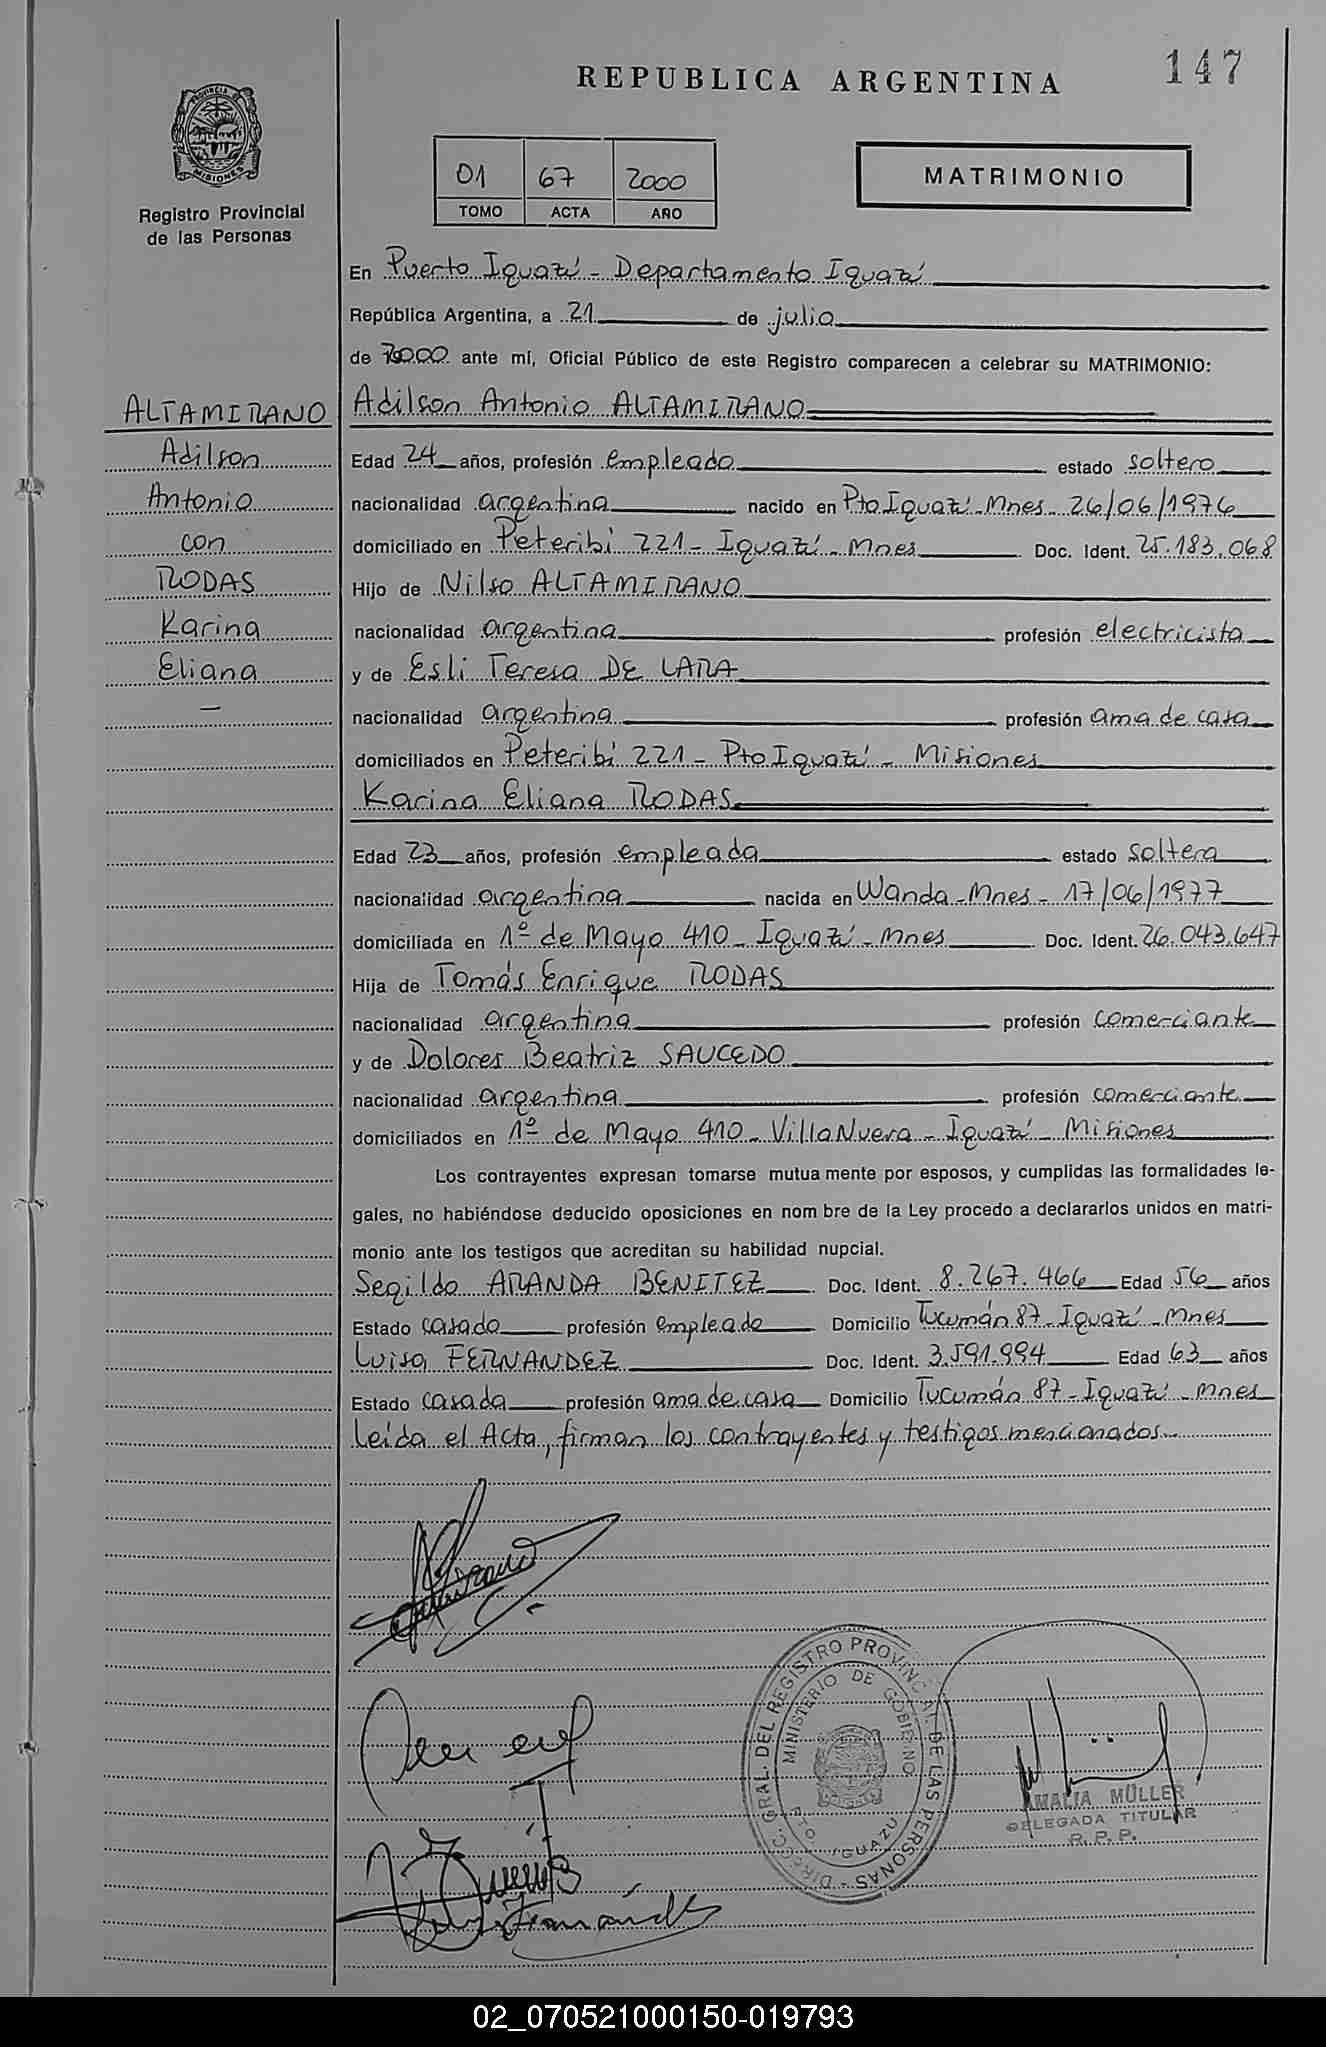 147
REPUBLICA ARGENTINA
PROVINCIA DE
MISIONES
Registro Provincial
de las Personas
01 67 2000
TOMO ACTA AÑO
MATRIMONIO
En Puerto Iguazú - Departamento Iguazú
República Argentina, a 21 de julio
de 2000 ante mí, Oficial Público de este Registro comparecen a celebrar su MATRIMONIO:
ALTAMIRANO
Adilson
Antonio
con
RODAS
Karina
Eliana
-
Adilson Antonio ALTAMIRANO
Edad 24 años, profesión empleado estado soltero
nacionalidad argentina nacido en Pto Iguazú - Mnes - 26/06/1976
domiciliado en Peteribí 221 - Iguazú - Mnes Doc. Ident. 25.183.068
Hijo de Nilso ALTAMIRANO
nacionalidad argentina profesión electricista
y de Esli Teresa DE LARA
nacionalidad argentina profesión ama de casa
domiciliados en Peteribí 221 - Pto Iguazú - Misiones
Karina Eliana RODAS
Edad 23 años, profesión empleada estado soltera
nacionalidad argentina nacida en Wanda - Mnes - 17/06/1977
domiciliada en 1º de Mayo 410 - Iguazú - Mnes Doc. Ident. 26.043.647
Hija de Tomás Enrique RODAS
nacionalidad argentina profesión comerciante
y de Dolores Beatriz SAUCEDO
nacionalidad argentina profesión comerciante
domiciliados en 1º de Mayo 410 - Villa Nueva - Iguazú - Misiones
Los contrayentes expresan tomarse mutua mente por esposos, y cumplidas las formalidades le-
gales, no habiéndose deducido oposiciones en nom bre de la Ley procedo a declararlos unidos en matri-
monio ante los testigos que acreditan su habilidad nupcial.
Segildo ARANDA BENITEZ Doc. Ident. 8.267.466 Edad 56 años
Estado casado profesión empleado Domicilio Tucumán 87 - Iguazú - Mnes
Luisa FERNANDEZ Doc. Ident. 3.591.994 Edad 63 años
Estado casada profesión ama de casa Domicilio Tucumán 87 - Iguazú - Mnes
Leída el Acta, firman los contrayentes y testigos mencionados.
DIRECC. GRAL. DEL REGISTRO PROVINCIAL DE LAS PERSONAS -
MINISTERIO DE GOBIERNO
PTO. IGUAZU
AMALIA MÜLLER
DELEGADA TITULAR
R. P. P.
02_070521000150-019793